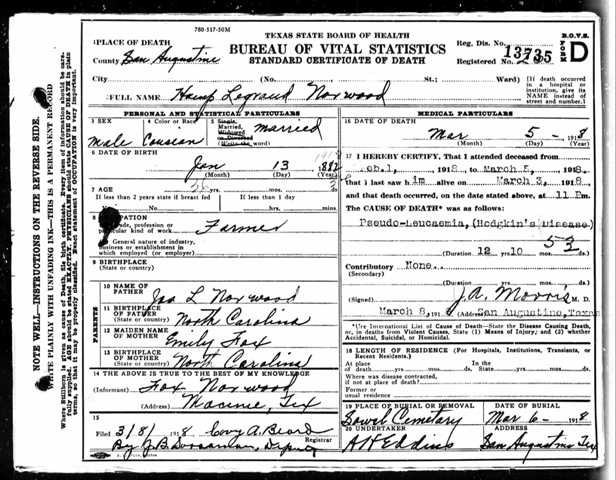 780-517-50M
TEXAS STATE BOARD OF HEALTH
BUREAU OF VITAL STATISTICS
STANDARD CERTIFICATE OF DEATH
Reg. Dis. No.
Registered No.
B.O.V.S. FORM D
PLACE OF DEATH
County San Augustine
City (No. St.; Ward)
[If death occurred in a hospital or institution, give its NAME instead of street and number.]
FULL NAME Legrand Norwood
PERSONAL AND STATISTICAL PARTICULARS
3 SEX
Male
4 Color or Race
5 Single, Married, Widowed
(Write the word)
Married
6 DATE OF BIRTH
Jan 13 1882
(Month) (Day) (Year)
7 AGE yrs. mos. ds.
If less than 2 years state if breast fed If less than 1 day hrs. min.
8 OCCUPATION
(a) Trade, profession, or particular kind of work Farmer
(b) General nature of industry, business or establishment in which employed (or employer)
9 BIRTHPLACE
(State or country)
PARENTS
10 NAME OF FATHER Jas L Norwood
11 BIRTHPLACE OF FATHER (State or country) North Carolina
12 MAIDEN NAME OF MOTHER Emily Fox
13 BIRTHPLACE OF MOTHER (State or country) North Carolina
14 THE ABOVE IS TRUE TO THE BEST OF MY KNOWLEDGE
(Informant) Fox Norwood
(Address) Tex
15
Filed 3/8/ 1918 A. Beard
Registrar
By J.B.
MEDICAL PARTICULARS
16 DATE OF DEATH
Mar 5 - 1918
(Month) (Day) (Year)
17 I HEREBY CERTIFY, That I attended deceased from
Feb.1, 1918, to March 5, 1918
that I last saw him alive on March 3, 1918
and that death occurred, on the date stated above, at 11 Pm.
The CAUSE OF DEATH* was as follows:
Pseudo-Leucaemia, (Hodgkin's Disease)
53
(Duration 12 yrs. 10 mos. ds.
Contributory None..
(Secondary)
(Duration yrs. mos. ds.
(Signed) J.A. Morris M. D.
March 8, 1918 (Address) San Augustine, Texas
*Use International List of Cause of Death—State the Disease Causing Death, or, in deaths from Violent Causes, State (1) Means of Injury; and (2) whether Accidental, Suicidal, or Homicidal.
18 LENGTH OF RESIDENCE (For Hospitals, Institutions, Transients, or Recent Residents.)
At place of death yrs. mos. ds. In the State yrs. mos. ds.
Where was disease contracted, if not at place of death?
Former or usual residence
19 PLACE OF BURIAL OR REMOVAL DATE OF BURIAL
Cemetary Mar 6- 1918
20 UNDERTAKER ADDRESS
A H Eddins San Augustine Tex
NOTE WELL—INSTRUCTIONS ON THE REVERSE SIDE.
WRITE PLAINLY WITH UNFADING INK—THIS IS A PERMANENT RECORD